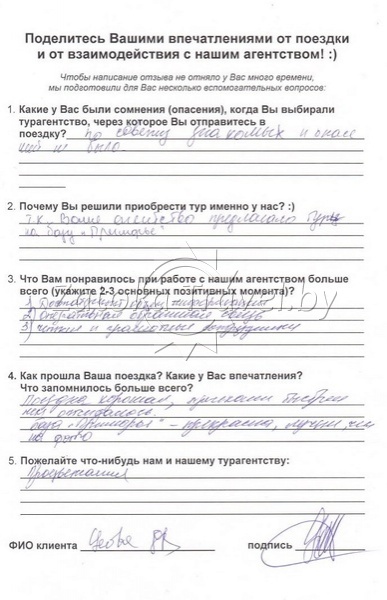 Поделитесь Вашими впечатлениями от поездки
и от взаимодействия с нашим агентством! :)
Чтобы написание отзыва не отняло у Вас много времени,
мы подготовили для Вас несколько вспомогательных вопросов:
1. Какие у Вас были сомнения (опасения), когда Вы выбирали
турагентство, через которое Вы отправитесь в
поездку? по совету знакомых и опасе
ний не было
2. Почему Вы решили приобрести тур именно у нас? :)
т.к. Ваше агентство предлагало туры
на базу "Приморье"
3. Что Вам понравилось при работе с нашим агентством больше
всего (укажите 2-3 основных позитивных момента)?
1)
2)
3) четкие и грамотные сотрудники
4. Как прошла Ваша поездка? Какие у Вас впечатления?
Что запомнилось больше всего?
Поездка хорошая,
база "Приморье" - прекрасна, лучше чем
на фото
5. Пожелайте что-нибудь нам и нашему турагентству:
Процветания
ФИО клиента
подпись